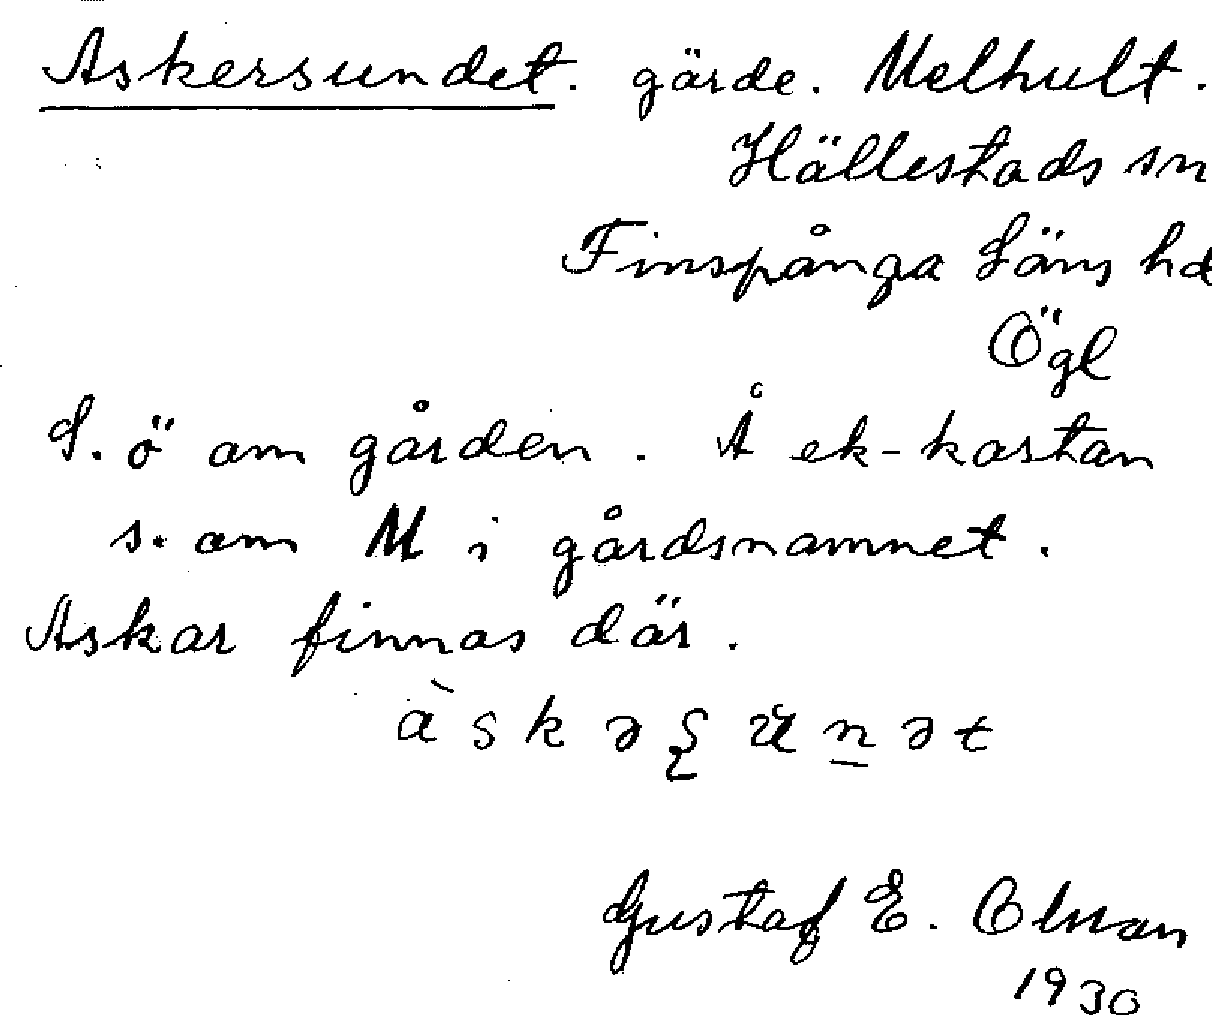 Askersundet. gärde. Melhult.
Hällestads sn
Finspånga Läns hd
Ögl
S. ö om gården. Å ek-kartan
s. om M i gårdsnamnet.
Askar finnas där.
Gustaf E.
1930